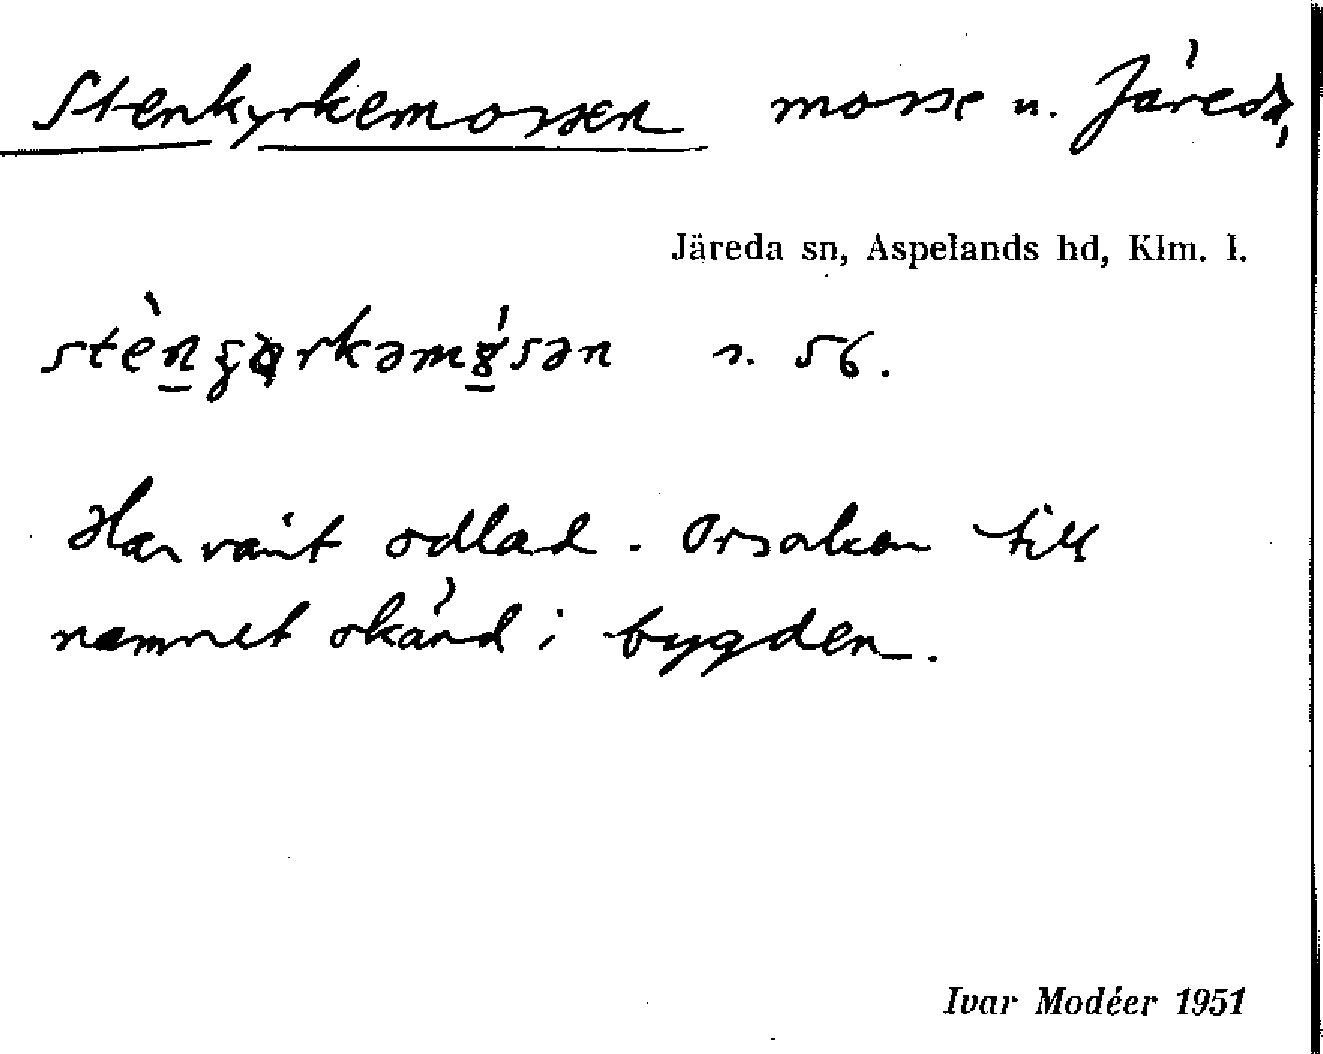 Stenkyrkemossen mosse n. Järeda,
Järeda sn, Aspelands hd, Klm. l.
s. 56.
Har varit odlad. Orsaken till
namnet okänd i bygden.
Ivar Modéer 1951